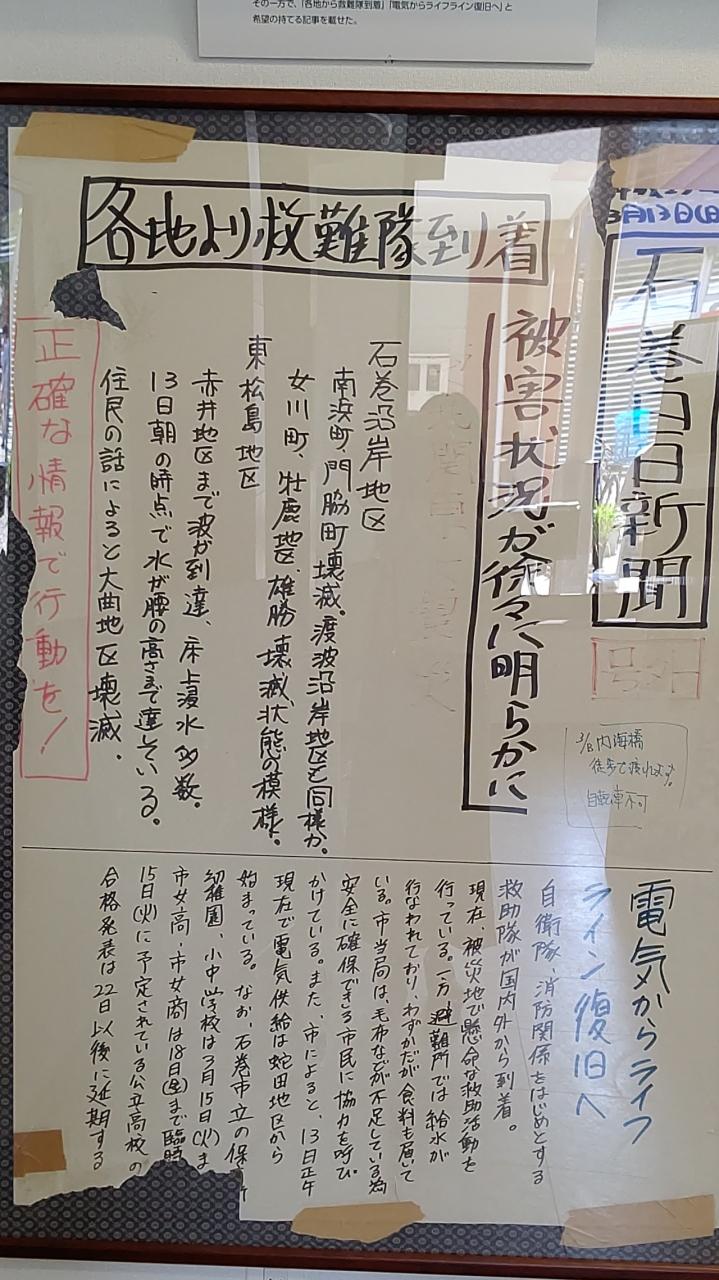 その一方で、「各地から救難隊到着」「電気からライフライン復旧へ」と
希望の持てる記事を載せた。
3月13日(日
石巻日日新聞
号外
3/13 内海橋
徒歩で渡れます。
自転車不可
各地より救難隊到着
被害状況が徐々に明らかに
石巻沿岸地区
南浜町、門脇町壊滅。渡波沿岸地区も同様か。
女川町、牡鹿地区、雄勝壊滅状態の模様。
東松島地区
赤井地区まで波が到達、床上浸水多数。
13日朝の時点で水が腰の高さまで達している。
住民の話によると大曲地区壊滅、
正確な情報で行動を!
電気からライフ
ライン復旧へ
自衛隊、消防関係をはじめとする
救助隊が国内外から到着。
現在、被災地で懸命な救助活動を
行っている。一方、避難所では給水が
行なわれており、わずかだが食料も届いて
いる。市当局は、毛布などが不足している為
安全に確保できる市民に協力を呼び
かけている。また、市によると、13日正午
現在で電気供給は蛇田地区から
始まっている。なお、石巻市立の保
幼稚園、小中学校は3月15日(火)ま
市女高・市女商は18日(金)まで臨時
15日(火)に予定されている公立高校の
合格発表は22日以後に延期する